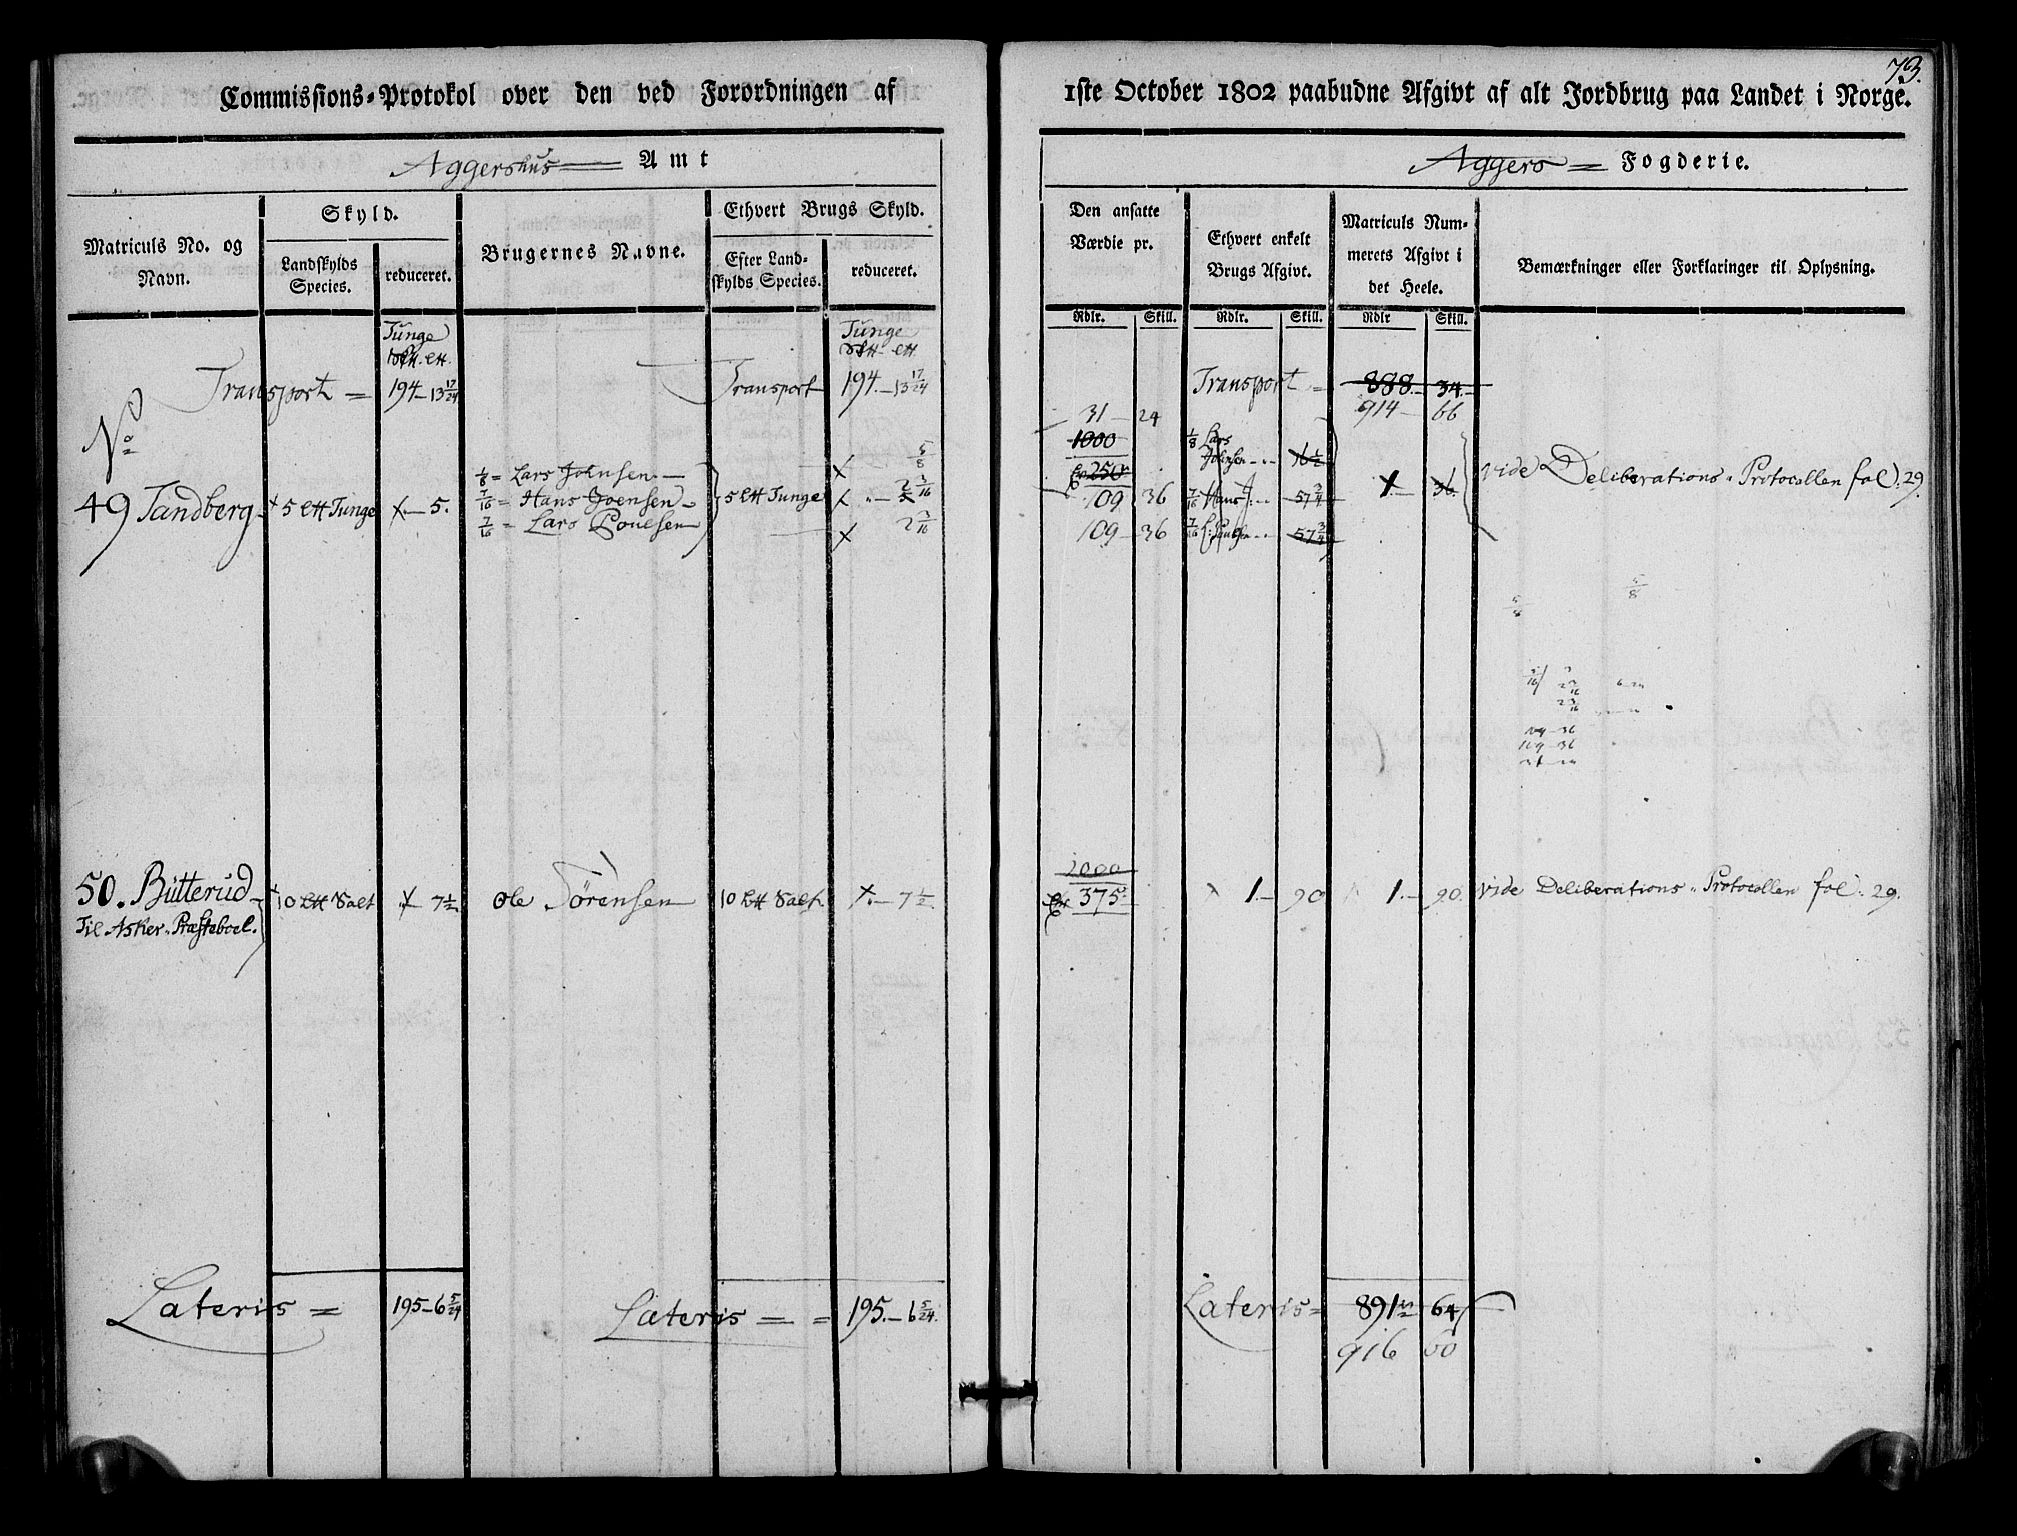 73.
Commissions-Protokol over den ved Forordningen af
1ste October 1802 paabudne Afgivt af alt Jordbrug paa Landet i Norge.
Aggershus Amt
Aggers Fogderie.
Matriculs No. og Navn.
Skyld.
Landskylds Species.
reduceret.
Brugernes Navne.
Ethvert Brugs Skyld.
Efter Landskylds Species.
reduceret.
Den ansatte Værdie pr.
Ethvert enkelt Brugs Afgivt.
Matriculs Nummerets Afgivt i det Heele.
Bemærkninger eller Forklaringer til Oplysning.
Rdlr. Skill. Rdlr. Skill. Rdlr Skill.
Tunge
Tunge
Transport = 194 - 13 17/24 Transport 194. - 13 17/24 Transport = 888. - 34.
914 - 66
No
31 - 24
1000
250
1/8 = Lars Johnsen - 5/8 1/8 Lars Johnsen 16 1/2
49 Tandberg 5 Tunge - 5. 7/16 = Hans Joensen 5 Tunge 2 3/16 109 36 7/16 Hans J: 57 3/4 1. - 36. vide Deliberations-Protocollen fol: 29.
7/16 = Lars Poulsen 2 3/16 109 - 36 7/16 L: Poulsen 57 3/4
5/8 5/8
2 3/16
2 3/16
109 - 36
109 - 36
2000
50. Bütterud 10 Salt - 7 1/2 Ole Sörensen 10 Salt. - 7 1/2. 375. 1. - 90 1. - 90. vide Deliberations-Protocollen fol: 29.
Til Asker-Præsteboel.
Lateris = 195 - 6 5/24 Lateris = = 195. - 6 5/24. Lateris = 891 64
916 60